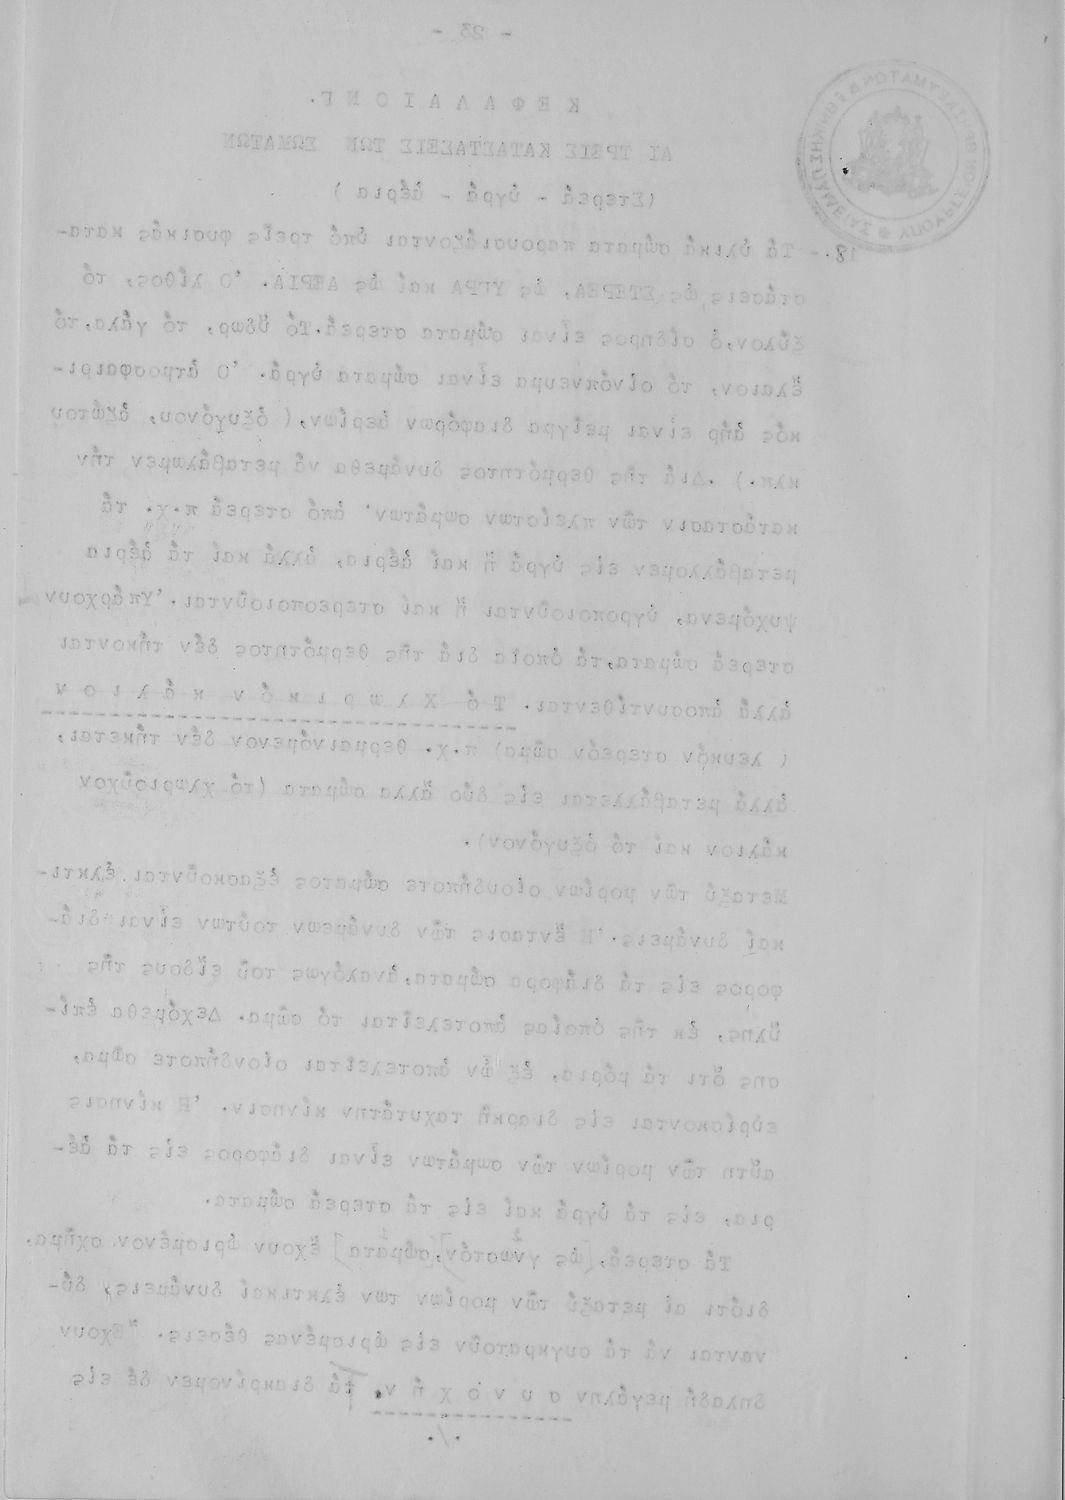 - 23 -
Κ Ε Φ Α Λ Α Ι Ο Ν Γ.
ΑΙ ΤΡΕΙΣ ΚΑΤΑΣΤΑΣΕΙΣ ΤΩΝ ΣΩΜΑΤΩΝ
(Στερεά - ὑγρά - ἀέρια )
18.- Τά ὑλικά σώματα παρουσιάζονται ὑπό τρεῖς φυσικάς κατα-
στάσεις ὡς ΣΤΕΡΕΑ, ὡς ΥΓΡΑ καί ὡς ΑΕΡΙΑ. Ὁ λίθος, τό
ξύλον,ὁ σίδηρος εἶναι σώματα στερεά.Τό ὕδωρ, τό γάλα,τό
ἔλαιον, τό οἰνόπνευμα εἶναι σώματα ὑγρά. Ὁ ἀτμοσφαιρι-
κός ἀήρ εἶναι μεῖγμα διαφόρων ἀερίων,( ὀξυγόνου, ἀζώτου
κλπ.) .Διά τῆς θερμότητος δυνάμεθα νά μεταβάλωμεν τήν
κατάστασιν τῶν πλείστων σωμάτων. ἀπό στερεά π.χ. τά
μεταβάλλομεν εἰς ὑγρά ἤ καί ἀέρια, ἀλλά καί τά ἀέρια
ψυχόμενα, ὑγροποιοῦνται ἤ καί στερεοποιοῦνται. Ὑπάρχουν
στερεά σώματα,τά ὁποῖα διά τῆς θερμότητος δέν τήκονται
ἀλλά ἀποσυντίθενται. Τ ό Χ λ ω ρ ι κ ό ν κ ά λ ι ο ν
( λευκόν στερεόν σῶμα) π.χ. θερμαινόμενον δέν τήκεται,
ἀλλά μεταβάλλεται εἰς δύο ἄλλα σώματα (τό χλωριοῦχον
κάλιον καί τό ὀξυγόνον).
Μεταξύ τῶν μορίων οἱουδήποτε σώματος ἐξασκοῦνται ἑλκτι-
καί δυνάμεις. Ἡ ἔντασις τῶν δυνάμεων τούτων εἶναι διά-
φορος εἰς τά διάφορα σώματα,ἀναλόγως τοῦ εἴδους τῆς
ὕλης, ἐκ τῆς ὁποίας ἀποτελεῖται τό σῶμα. Δεχόμεθα ἐπί-
σης ὅτι τά μόρια, ἐξ ὧν ἀποτελεῖται οἱονδήποτε σῶμα,
εὑρίσκονται εἰς διαρκῆ ταχυτάτην κίνησιν. Ἡ κίνησις
αὕτη τῶν μορίων τῶν σωμάτων εἶναι διάφορος εἰς τά ἀέ-
ρια, εἰς τά ὑγρά καί εἰς τά στερεά σώματα.
Τά στερεά,[ὡς γνωστόν],[σώματα] ἔχουν ὡρισμένον σχῆμα,
διότι αἱ μεταξύ τῶν μορίων των ἑλκτικαί δυνάμεις, δύ-
νανται νά τά συγκρατοῦν εἰς ὡρισμένας θέσεις. Ἔχουν
δηλαδή μεγάλην σ υ ν ο χ ή ν. Τά διακρίνομεν δέ εἰς
./.